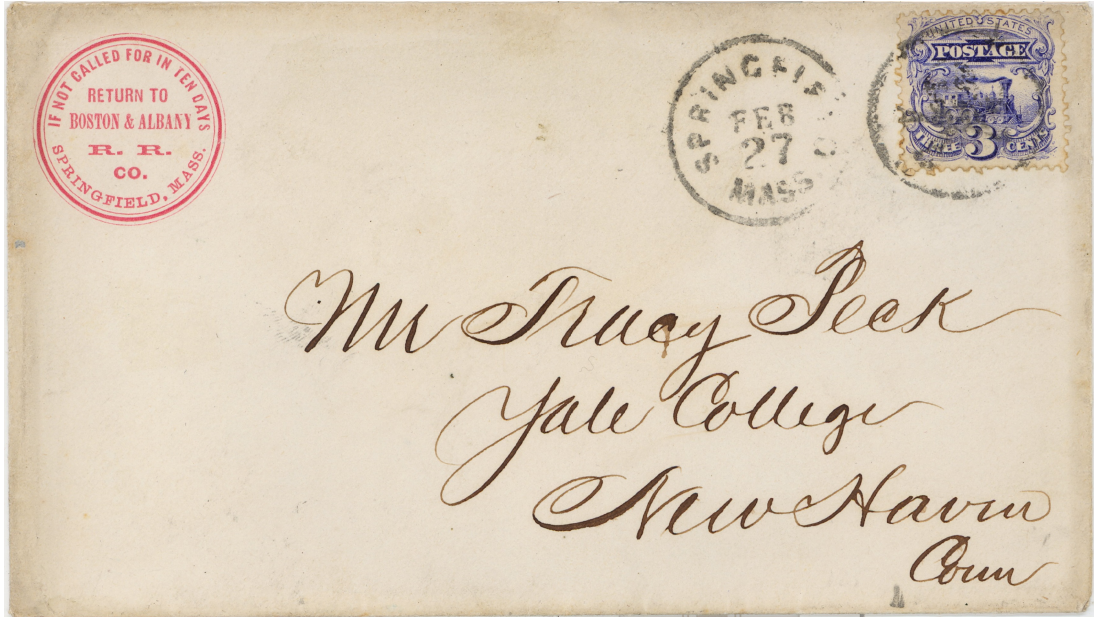 IF NOT CALLED FOR IN TEN DAYS
RETURN TO
BOSTON & ALBANY
R. R.
CO.
SPRINGFIELD, MASS.
SPRINGFIE
FEB
27
MASS
UNITED STATES
POSTAGE
THREE 3 CENTS
Mr Tracy Peck
Yale College
New Haven
Conn